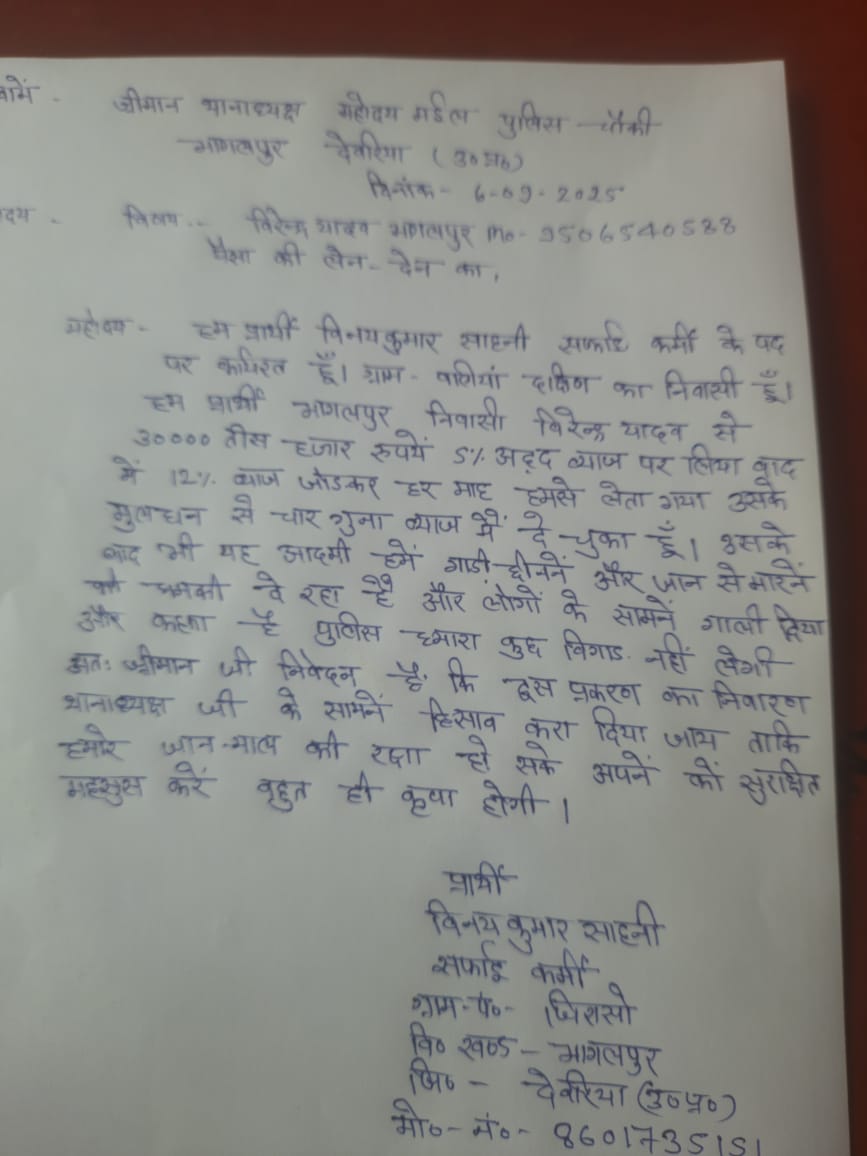 श्रीमान थानाध्यक्ष महोदय मईल पुलिस - चौकी
भागलपुर देवरिया (उ०प्र०)
दिनांक - 6-09-2025
विषय .. विरेन्द्र यादव भागलपुर mo- 9506540588
पैसा की लेन - देन का,
महोदय - हम प्रार्थी विनय कुमार साहनी सफाई कर्मी के पद
पर कार्यरत हूँ। ग्राम - दक्षिण का निवासी हूँ।
हम प्रार्थी भागलपुर निवासी विरेन्द्र यादव से
30000 तीस हजार रुपयें 5% अदद ब्याज पर लिया बाद
में 12% ब्याज जोडकर हर माह हमसे लेता गया उसके
मुलधन से चार गुना ब्याज मैं दे चुका हूँ। उसके
बाद भी यह आदमी हमें गाडी छीननें और जान से मारनें
की धमकी दे रहा है और लोगों के सामनें गाली दिया
और कहता है पुलिस हमारा कुछ विगाड नहीं लेगी
अतः श्रीमान जी निवेदन है कि इस प्रकरण का निवारण
थानाध्यक्ष जी के सामनें हिसाव करा दिया जाय ताकि
हमारे जान-माल की रक्षा हो सके अपनें को सुरक्षित
महसुस करें बहुत ही कृपा होगी।
प्रार्थी
विनय कुमार साहनी
सफाई कर्मी
ग्राम-पं०- जिरासो
वि० खण्ड - भागलपुर
जि० - देवरिया (उ०प्र०)
मो०-नं०- 8601735151